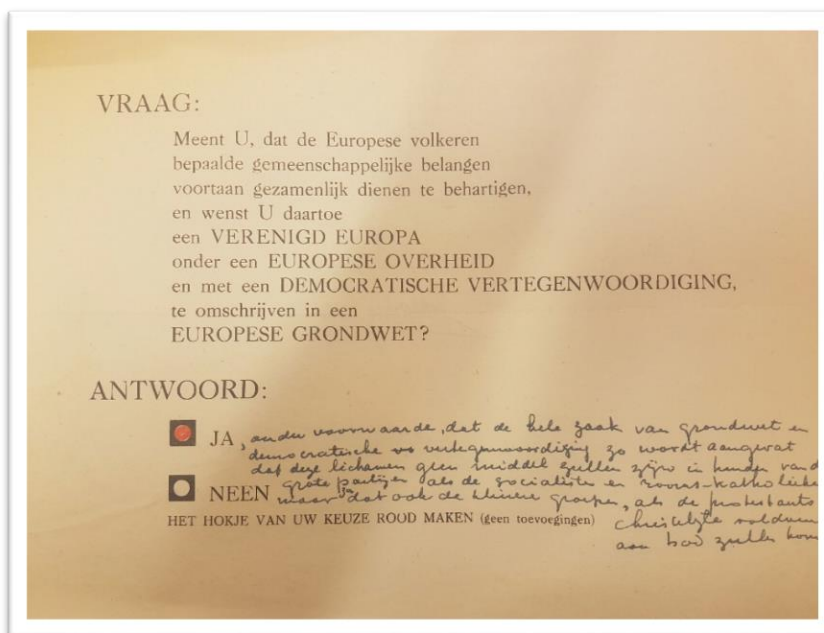 VRAAG:
Meent U, dat de Europese volkeren
bepaalde gemeenschappelijke belangen
voortaan gezamenlijk dienen te behartigen,
en wenst U daartoe
een VERENIGD EUROPA
onder een EUROPESE OVERHEID
en met een DEMOCRATISCHE VERTEGENWOORDIGING,
te omschrijven in een
EUROPESE GRONDWET?
ANTWOORD:
JA, onder voorwaarde, dat de hele zaak van grondwet en
democratische vertegenwoordiging zo wordt aangevat
dat deze lichamen geen middel zullen zijn in handen van d
grote partijen als de socialisten en rooms-katholieke
NEEN maar dat ook de kleinere groepen, als de protestants
HET HOKJE VAN UW KEUZE ROOD MAKEN (geen toevoegingen)
christelijke voldoen
aan bod zullen kom